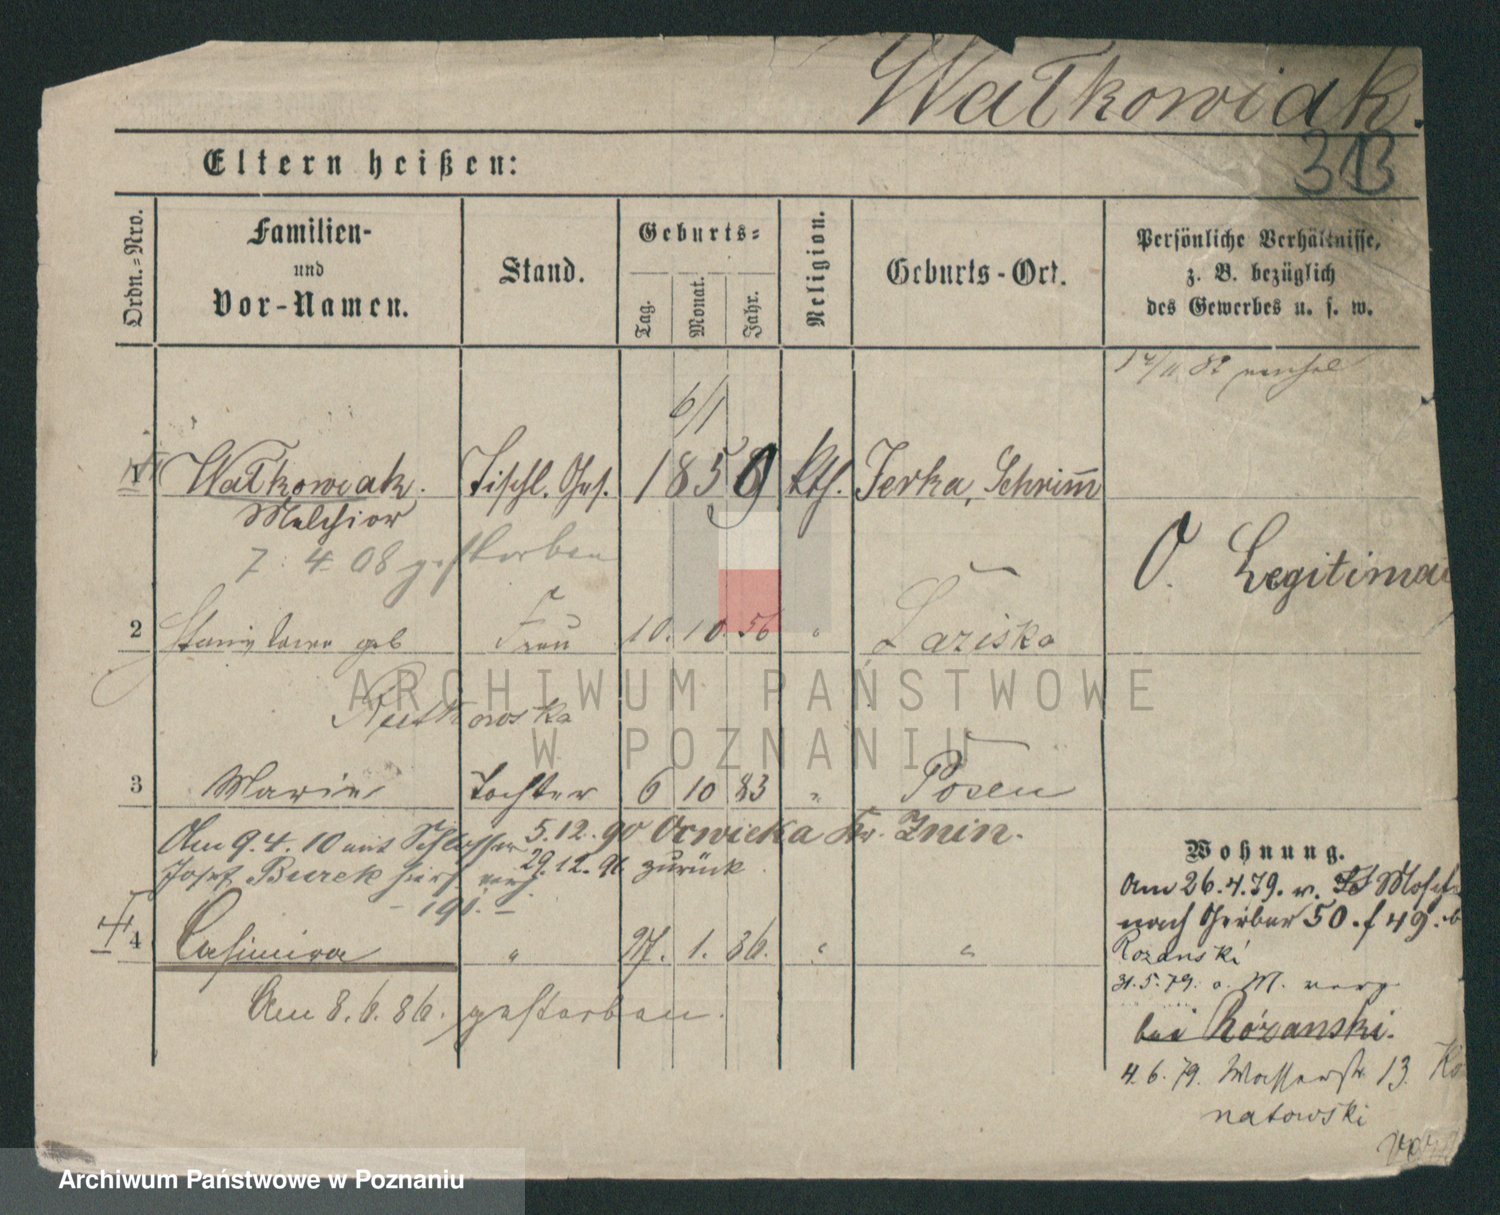 Wałkowiak.
313
Eltern heißen:
Ordn.-Nro.
Familien-
und
Vor-Namen.
Stand.
Geburts-
Tag.
Monat.
Jahr.
Religion.
Geburts-Ort.
Persönliche Verhältnisse,
z. B. bezüglich
des Gewerbes u. s. w.
6/1
1 Wałkowiak. Tischl. Ges. 1859 kth. Jerka, Schrimm
Melchior
7. 4. 08 gestorben
O. Legitima
2 geb Frau 10. 10. 56 " Łaziska
Rutkowska
3 Marie Tochter 6 10 83 " Posen
Am 9. 4. 10 mit Schlosser 5. 12. 90 Ocwieka Kr. Znin.
Josef Burek hier verh. 29. 12. 91 zurück
4 Casimira " 27. 1. 86. " "
Am 8. 6. 86. gestorben.
Wohnung.
Am 26. 4. 79. v.
nach Gerber 50. f 49. b
Rozanski
31. 5. 79. a. M. verz
bei Rózanski.
4. 6. 79. Wasserstr. 13. Ko
natowski
ARCHIWUM PAŃSTWOWE
W POZNANIU
Archiwum Państwowe w Poznaniu